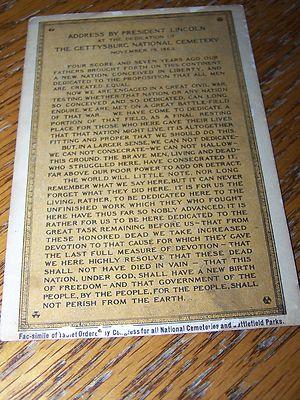 ADDRESS BY PRESIDENT LINCOLN
AT THE DEDICATION OF
THE GETTYSBURG NATIONAL CEMETERY
NOVEMBER 19, 1863.
FOUR SCORE AND SEVEN YEARS AGO OUR
FATHERS BROUGHT FORTH ON THIS CONTINENT
A NEW NATION, CONCEIVED IN LIBERTY, AND
DEDICATED TO THE PROPOSITION THAT ALL MEN
ARE CREATED EQUAL.
NOW WE ARE ENGAGED IN A GREAT CIVIL WAR,
TESTING WHETHER THAT NATION, OR ANY NATION
SO CONCEIVED AND SO DEDICATED, CAN LONG
ENDURE. WE ARE MET ON A GREAT BATTLE-FIELD
OF THAT WAR. WE HAVE COME TO DEDICATE A
PORTION OF THAT FIELD, AS A FINAL RESTING
PLACE FOR THOSE WHO HERE GAVE THEIR LIVES
THAT THAT NATION MIGHT LIVE. IT IS ALTOGETHER
FITTING AND PROPER THAT WE SHOULD DO THIS.
BUT, IN A LARGER SENSE, WE CAN NOT DEDICATE—
WE CAN NOT CONSECRATE—WE CAN NOT HALLOW—
THIS GROUND. THE BRAVE MEN, LIVING AND DEAD—
WHO STRUGGLED HERE, HAVE CONSECRATED IT,
FAR ABOVE OUR POOR POWER TO ADD OR DETRACT.
THE WORLD WILL LITTLE NOTE, NOR LONG
REMEMBER WHAT WE SAY HERE, BUT IT CAN NEVER
FORGET WHAT THEY DID HERE. IT IS FOR US THE
LIVING, RATHER, TO BE DEDICATED HERE TO THE
UNFINISHED WORK WHICH THEY WHO FOUGHT
HERE HAVE THUS FAR SO NOBLY ADVANCED. IT IS
RATHER FOR US TO BE HERE DEDICATED TO THE
GREAT TASK REMAINING BEFORE US—THAT FROM
THESE HONORED DEAD WE TAKE INCREASED
DEVOTION TO THAT CAUSE FOR WHICH THEY GAVE
THE LAST FULL MEASURE OF DEVOTION—THAT
WE HERE HIGHLY RESOLVE THAT THESE DEAD
SHALL NOT HAVE DIED IN VAIN—THAT THIS
NATION, UNDER GOD, SHALL HAVE A NEW BIRTH
OF FREEDOM—AND THAT GOVERNMENT OF THE
PEOPLE, BY THE PEOPLE, FOR THE PEOPLE, SHALL
NOT PERISH FROM THE EARTH.
Fac-simile of Tablet Ordered by Congress for all National Cemeteries and Battlefield Parks.